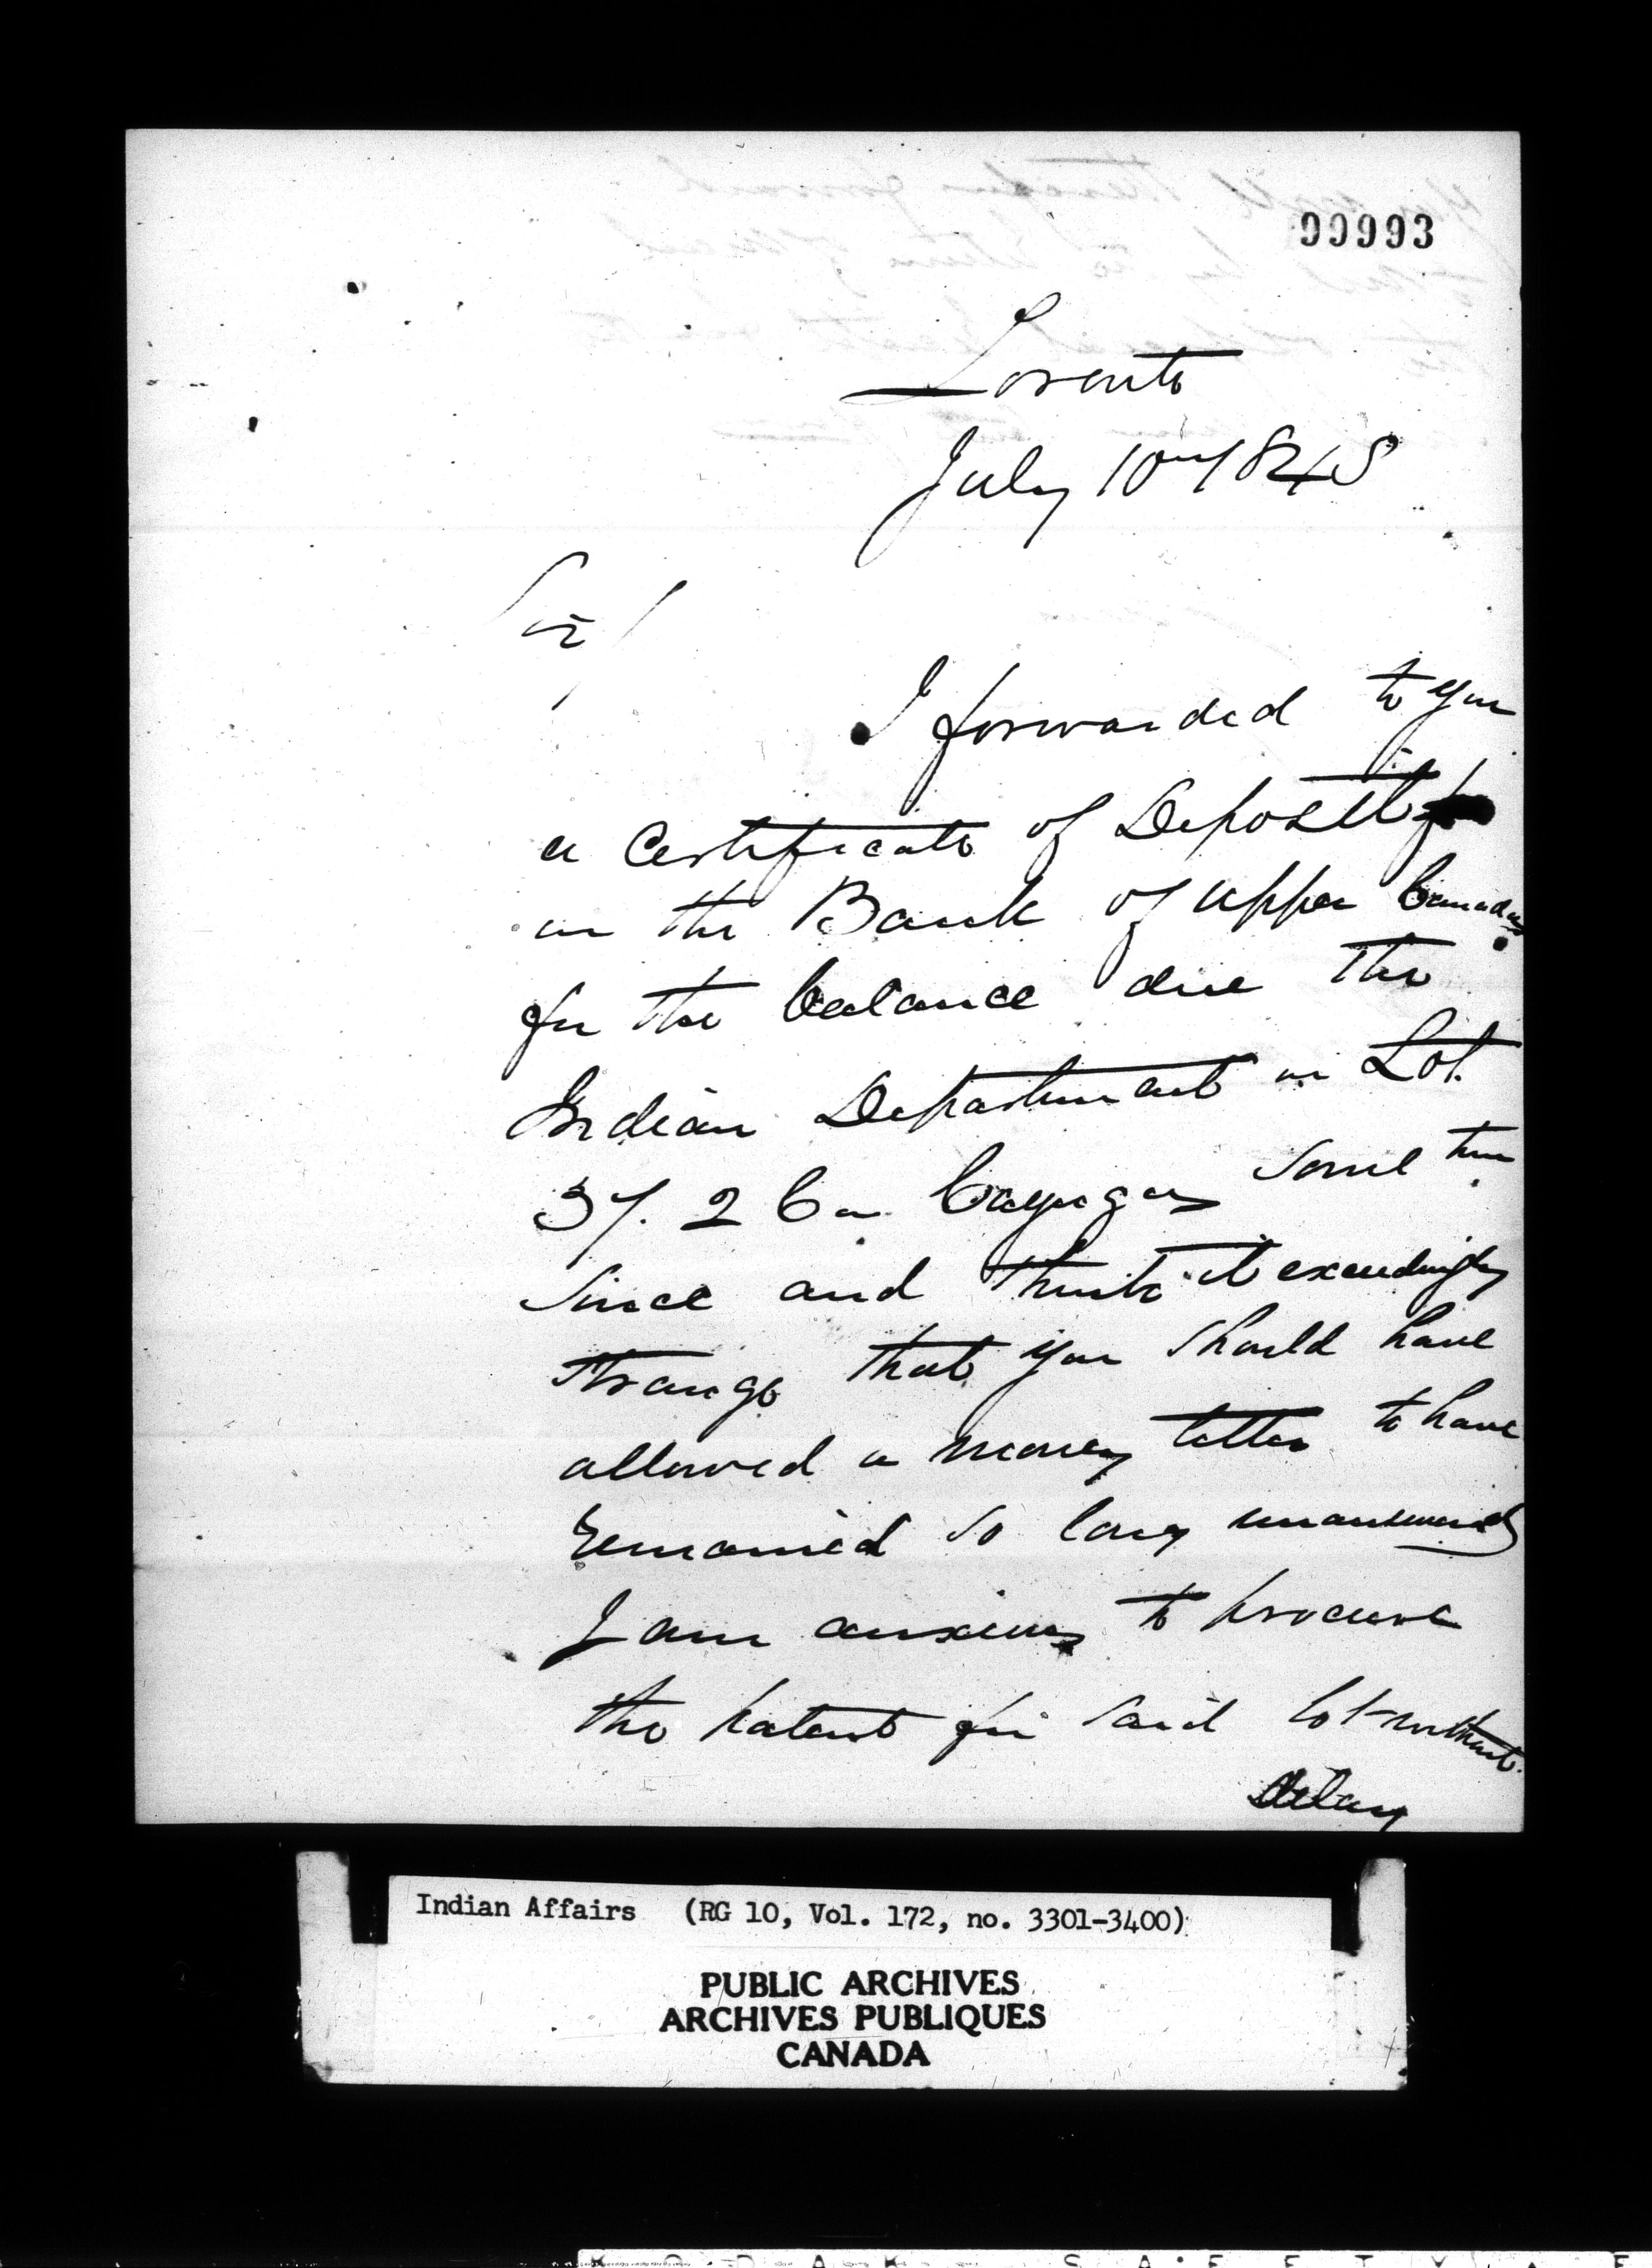 99993
Toronto
July 10th 1848
Sir/
I forwarded to you
a Certificate of Deposit
in the Bank of upper Canada
for the balance due the
Indian Department on Lot
37. 2 Con Cayuga some time
since and think it exceedingly
strange that you should have
allowed a money letter to have
remained so long unanswered
I am anxious to procure
the patent for said lot without
delay
Indian Affairs (RG 10, Vol. 172, no. 3301-3400)
PUBLIC ARCHIVES
ARCHIVES PUBLIQUES
CANADA